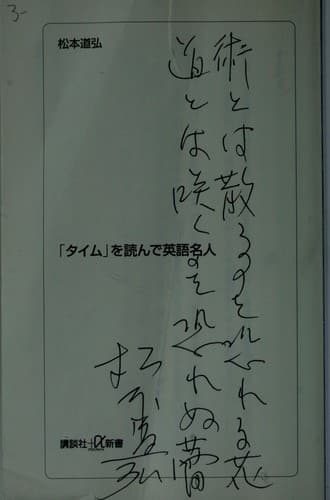 3-
松本道弘
術とは散るのを恐れる花
道とは咲くのを恐れぬ蕾
「タイム」を読んで英語名人
松本道弘
講談社+α新書